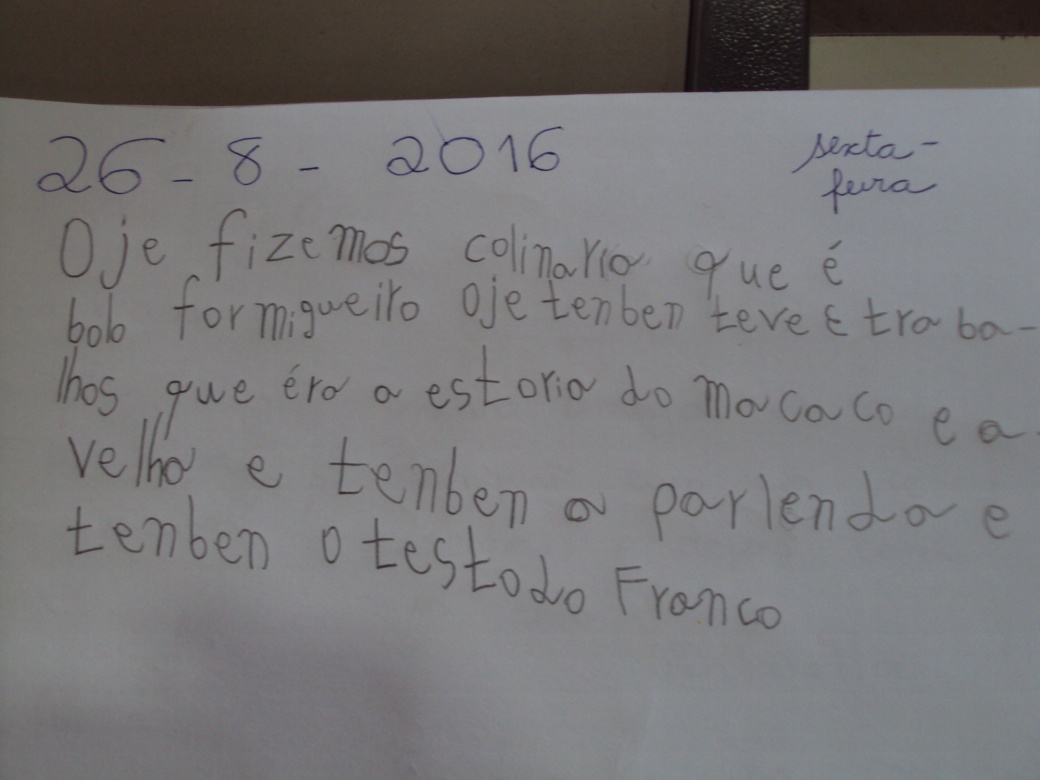 26 - 8 - 2016 sexta-
feira
Oje fizemos colinaria que é
bolo formigueiro Oje tenben teve E traba-
lhos que éra a estoria do macaco e a
velha e tenben a parlenda e
tenben o testodo Franco